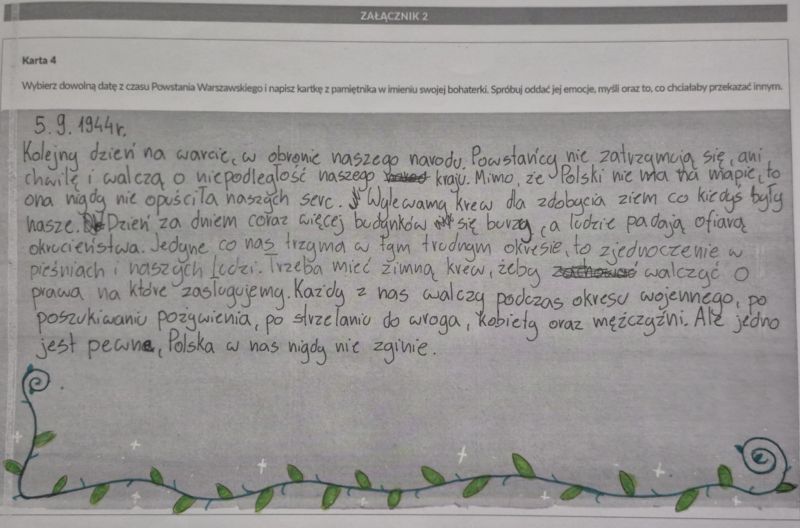 ZAŁĄCZNIK 2
Karta 4
Wybierz dowolną datę z czasu Powstania Warszawskiego i napisz kartkę z pamiętnika w imieniu swojej bohaterki. Spróbuj oddać jej emocje, myśli oraz to, co chciałaby przekazać innym.
5.9.1944r.
Kolejny dzień na warcie, w obronie naszego narodu. Powstańcy nie zatrzymują się, ani
chwilę i walczą o niepodległość naszego kraju. Mimo, że Polski nie ma na mapie, to
ona nigdy nie opuściła naszych serc. Wylewamy krew dla zdobycia ziem co kiedyś były
nasze. Dzień za dniem coraz więcej budynków się burzy, a ludzie padają ofiarą
okrucieństwa. Jedyne co nas trzyma w tym trudnym okresie, to zjednoczenie w
pieśniach i naszych ludzi. Trzeba mieć zimną krew, żeby walczyć o
prawa na które zasługujemy. Każdy z nas walczy podczas okresu wojennego, po
poszukiwaniu pożywienia, po strzelaniu do wroga, kobiety oraz mężczyźni. Ale jedno
jest pewne, Polska w nas nigdy nie zginie.